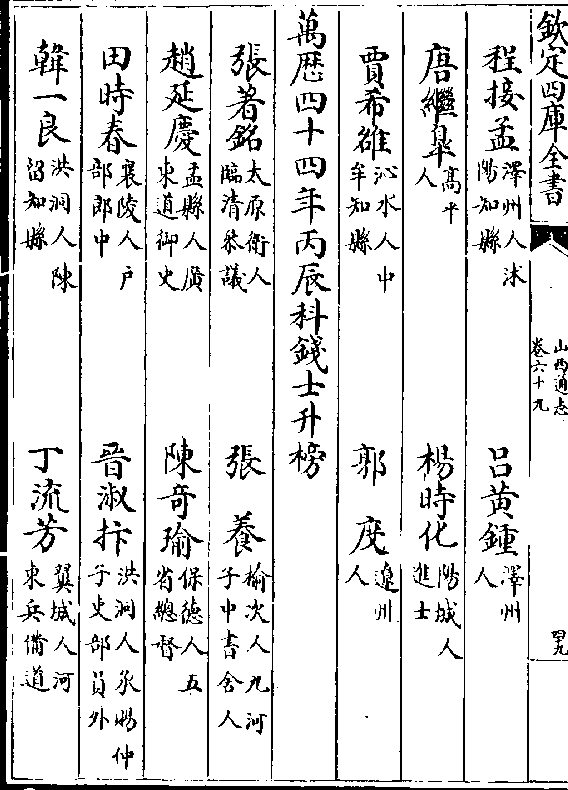 欽定四庫全書
山西通志
卷六十九
四九
程接孟 澤州人沭陽知縣 吕黄鍾 澤州人
唐繼皐 高平人 楊時化 陽城人進士
賈希雒 沁水人中牟知縣 郭度 遼州人
萬歴四十四年丙辰科錢士升榜
張著銘 太原衛人臨清叅議 張養 榆次人九河子中書舍人
趙延慶 孟縣人廣東道御史 陳奇瑜 保德人五省總督
田時春 襄陵人户部郎中 晉淑抃 洪洞人承賜仲子吏部員外
韓一良 洪洞人陳留知縣 丁流芳 翼城人河東兵備道